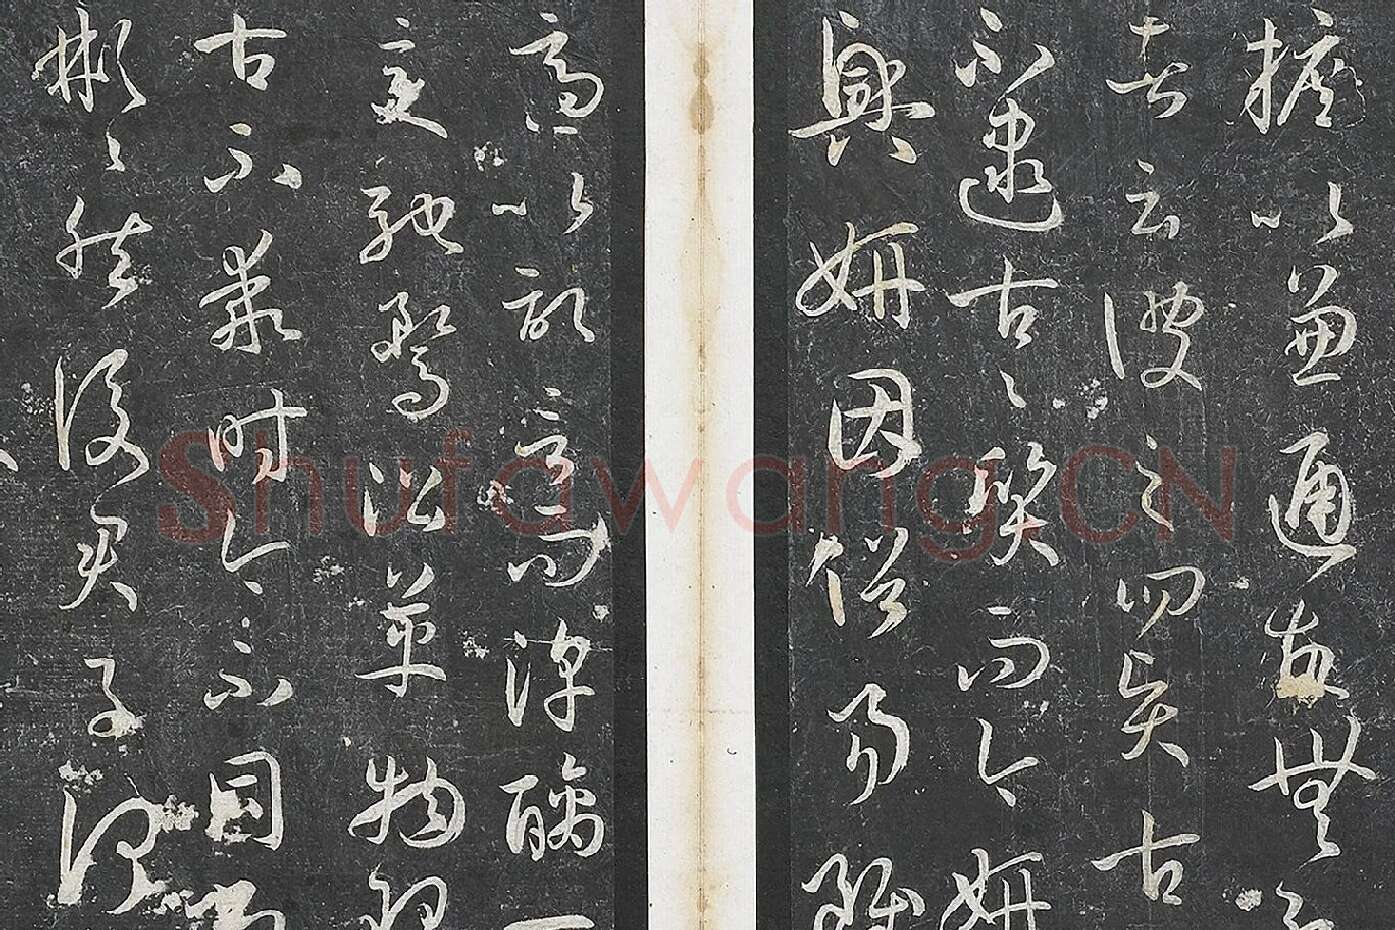 擅以兼通故無
者云彼之四賢古
不逮古〻質而今妍
興妍因俗易雖
適以記言而淳醨一
變馳騖沿革物理
古不乖時今不同弊
彬〻然後君子何
Shufawang.CN